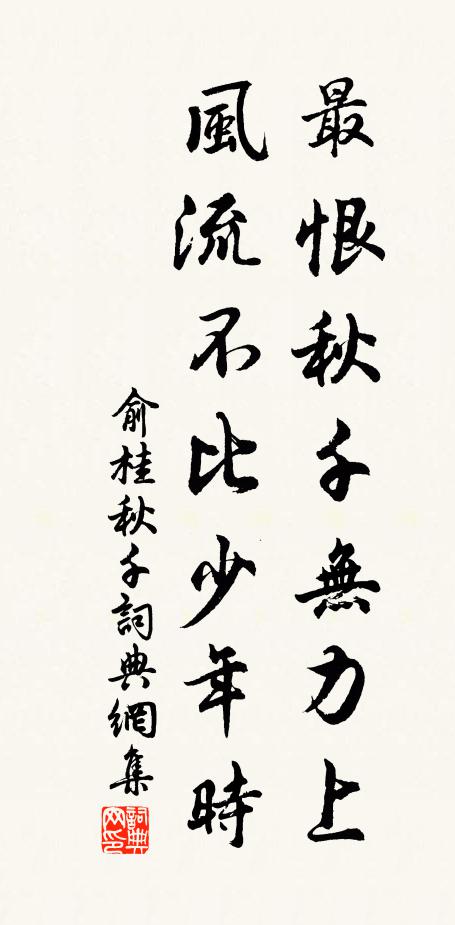 最恨秋千無力上
風流不比少年時
俞桂秋千詞典網集
詞典
网印